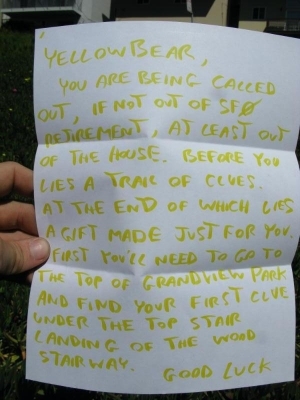 YELLOWBEAR,
YOU ARE BEING CALLED
OUT, IF NOT OUT OF SFØ
RETIREMENT, AT LEAST OUT
OF THE HOUSE. BEFORE YOU
LIES A TRAIL OF CLUES.
AT THE END OF WHICH LIES
A GIFT MADE JUST FOR YOU.
FIRST YOU'LL NEED TO GO TO
THE TOP OF GRANDVIEW PARK
AND FIND YOUR FIRST CLUE
UNDER THE TOP STAIR
LANDING OF THE WOOD
STAIRWAY. GOOD LUCK